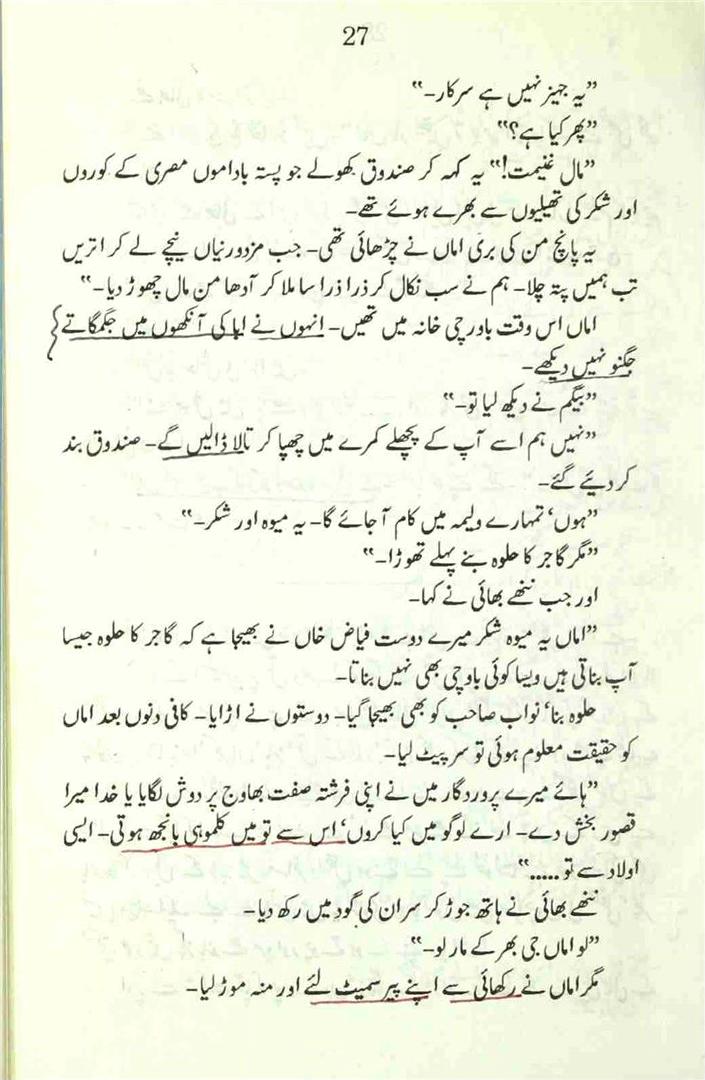 27
”یہ جہیز نہیں ہے سرکار۔“
”پھر کیا ہے؟“
”مال غنیمت!“ یہ کہہ کر صندوق کھولے جو پستہ باداموں مصری کے کوروں
اور شکر کی تھیلیوں سے بھرے ہوئے تھے۔
یہ پانچ من کی بری اماں نے چڑھائی تھی۔ جب مزدورنیاں نیچے لے کر اتریں
تب ہمیں پتہ چلا۔ ہم نے سب نکال کر ذرا ذرا سا ملا کر آدھا من مال چھوڑ دیا۔“
اماں اس وقت باورچی خانہ میں تھیں۔ انہوں نے ابا کی آنکھوں میں جگمگاتے
جگنو نہیں دیکھے۔
”بیگم نے دیکھ لیا تو۔“
”نہیں ہم اسے آپ کے پچھلے کمرے میں چھپا کر تالا ڈالیں گے۔ صندوق بند
کر دیئے گئے۔
”ہوں‘ تمہارے ولیمہ میں کام آ جائے گا۔ یہ میوہ اور شکر۔“
”مگر گاجر کا حلوہ بنے پہلے تھوڑا۔“
اور جب ننھے بھائی نے کہا۔
”اماں یہ میوہ شکر میرے دوست فیاض خاں نے بھیجا ہے کہ گاجر کا حلوہ جیسا
آپ بناتی ہیں ویسا کوئی باورچی بھی نہیں بناتا۔
حلوہ بنا‘ نواب صاحب کو بھی بھیجا گیا۔ دوستوں نے اڑایا۔ کافی دنوں بعد اماں
کو حقیقت معلوم ہوئی تو سر پیٹ لیا۔
”ہائے میرے پروردگار میں نے اپنی فرشتہ صفت بھاوج پر دوش لگایا یا خدا میرا
قصور بخش دے۔ ارے لوگو میں کیا کروں‘ اس سے تو میں کلموہی بانجھ ہوتی۔ ایسی
اولاد سے تو .....“
ننھے بھائی نے ہاتھ جوڑ کر سر ان کی گود میں رکھ دیا۔
”لو اماں جی بھر کے مار لو۔“
مگر اماں نے رکھائی سے اپنے پیر سمیٹ لئے اور منہ موڑ لیا۔